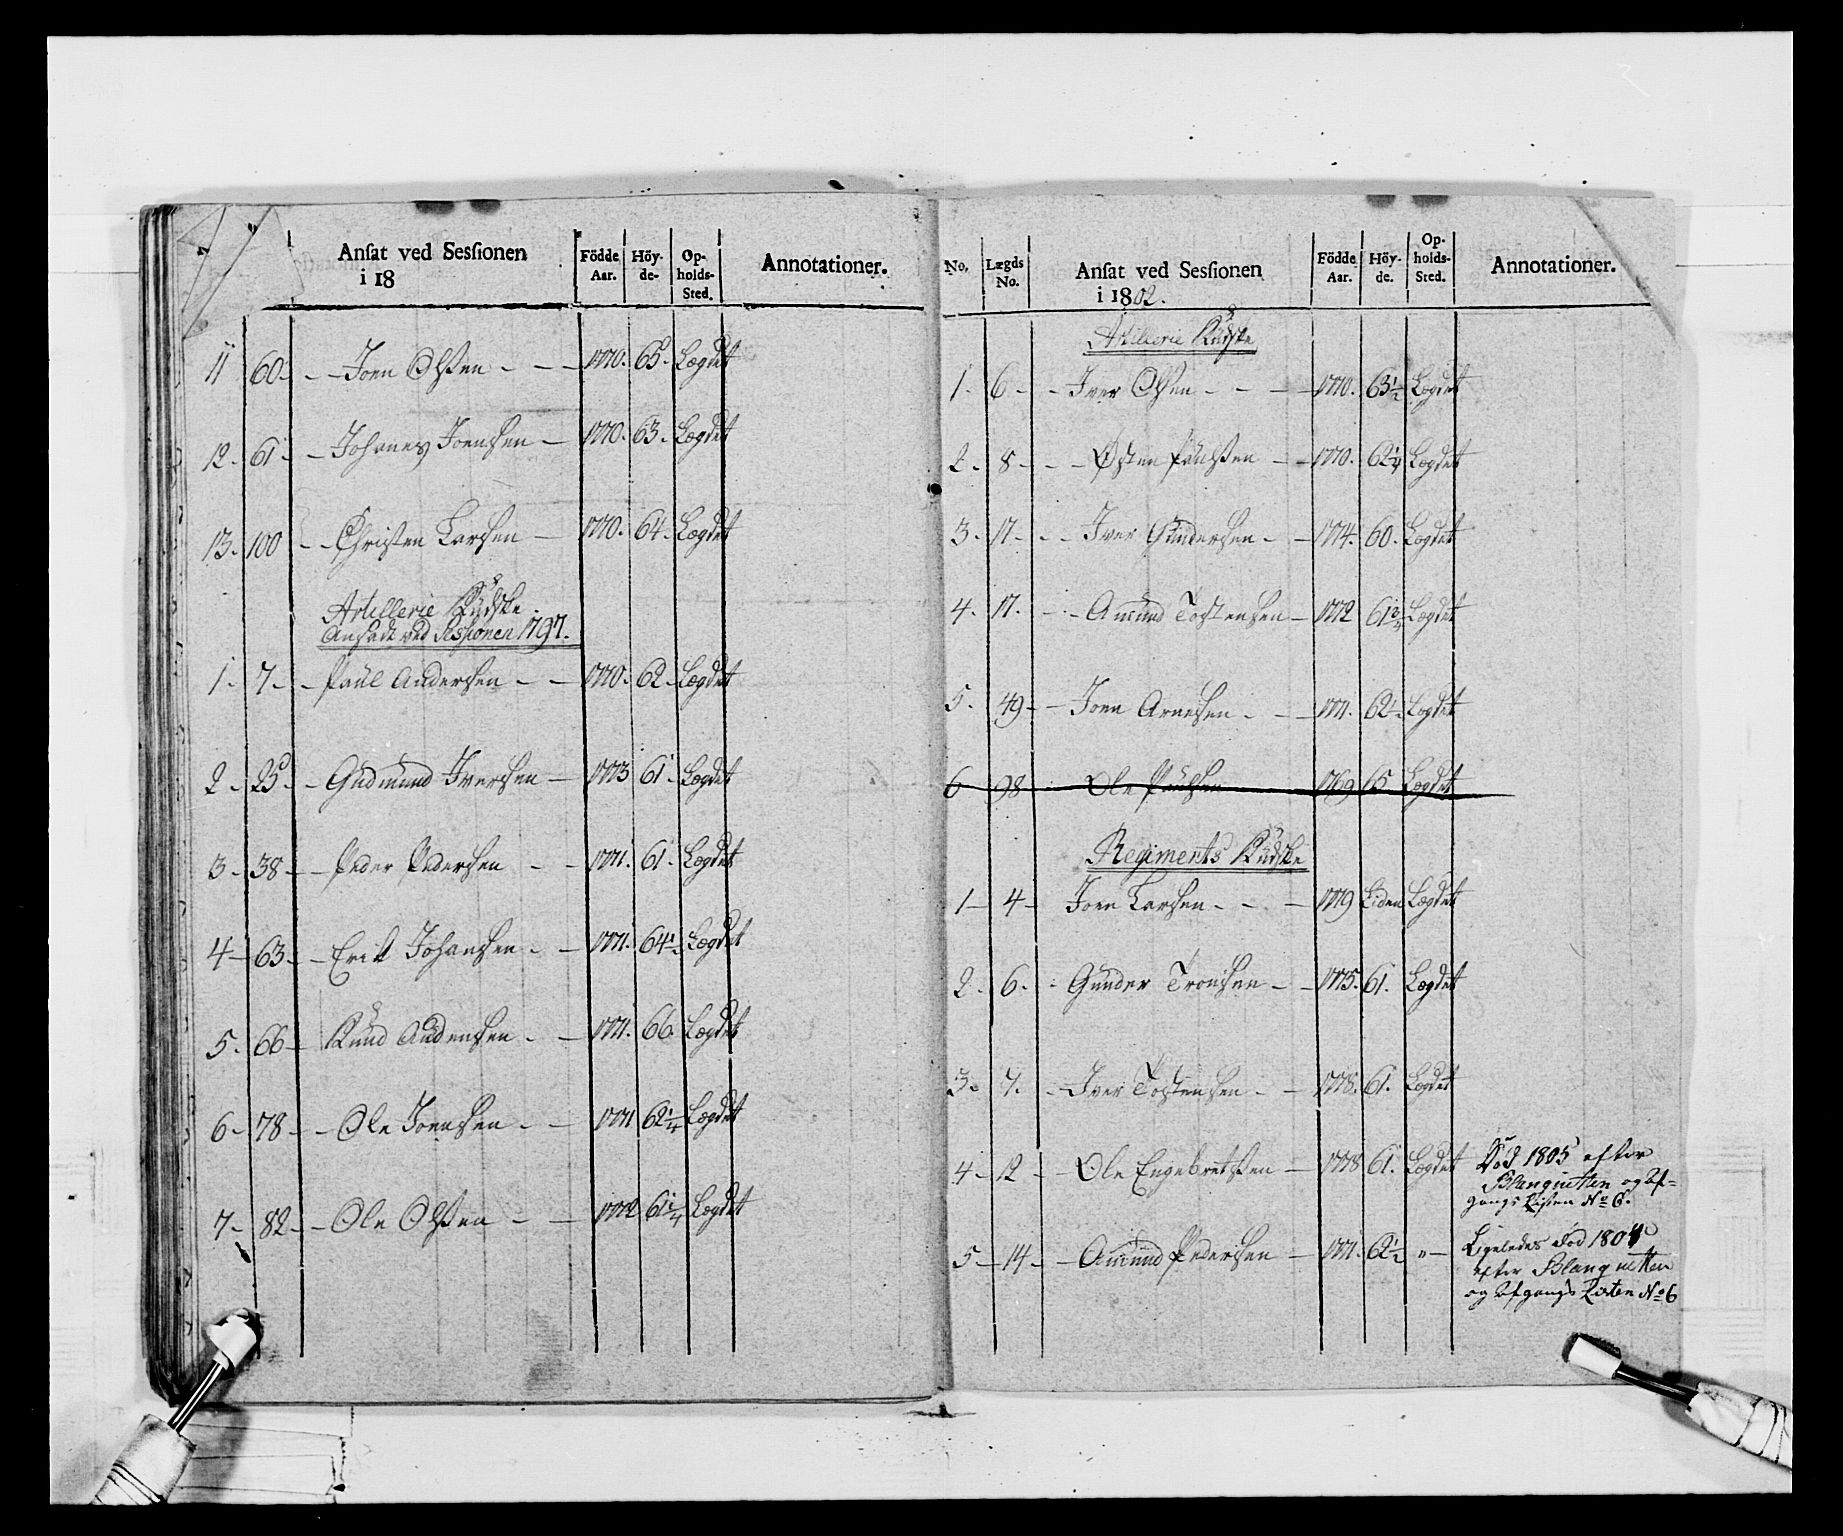 Ansat ved Sessionen
i 18
Födde Aar.
Höy-de-
Op-holds-Sted.
Annotationer.
11 60 - - Joen Olsen - - - 1770. 65. Lægdet
12 - 61 - - Johanes Joensen - 1770. 63. Lægdet
13 - 100 - - Christen Larsen - 1770. 64. Lægdet
Artillerie Kudske
Ansadt ved Sessionen 1797.
1 - 7 - - Paul Andersen - - 1770. 62 Lægdet
2 - 25 - - Gudmund Iversen - 1773 61 Lægdet
3 - 38 - - Peder Pedersen - - 1771. 61. Lægdet
4 - 63 - - Erik Johansen - - 1771. 64½ Lægdet
5. 66 - Knud Audensen - - 1771. 66 Lægdet
6 - 78 - - Ole Joensen - - 1771 62¼ Lægdet
7 - 82 - - Ole Olsen - - 1772 61¼ Lægdet
No.
Lægds No.
Ansat ved Sessionen
i 1802.
Födde Aar.
Höy-de.
Op-holds-Sted.
Annotationer.
Artillerie Kudske
1. 6 - - Iver Olsen - - - 1770. 63½ Lægdet
2. 8 - - - Østen Paulsen - - 1770. 62¼ Lægdet
3. 17 - - - Iver Gundersen - - 1774. 60. Lægdet
4. 17. - - Amund Tostensen - 1772 61¾ Lægdet
5. 49 - - Joen Arnesen - - - 1771. 62½ Lægdet
6 98 - Ole Paulsen 1769 65 Lægdet
Regiments Kudske
1 - 4 - Joen Larsen - - - 1779 Liden Lægdet
2. 6. - Gunder Tronsen - - 1775. 61. Lægdet
3. 7. - Iver Tostensen - - 1778. 61. Lægdet
4 - 12 - - Ole Engebretsen - 1778 61. Lægdet Död 1805 efter
Blanquetten og Af=
gangs Listen No 6.
5 - 14 - - Amund Pedersen - 1771. 62½ " - Ligeledes död 1804
efter Blanquetten
og Afgangs Listen No 6